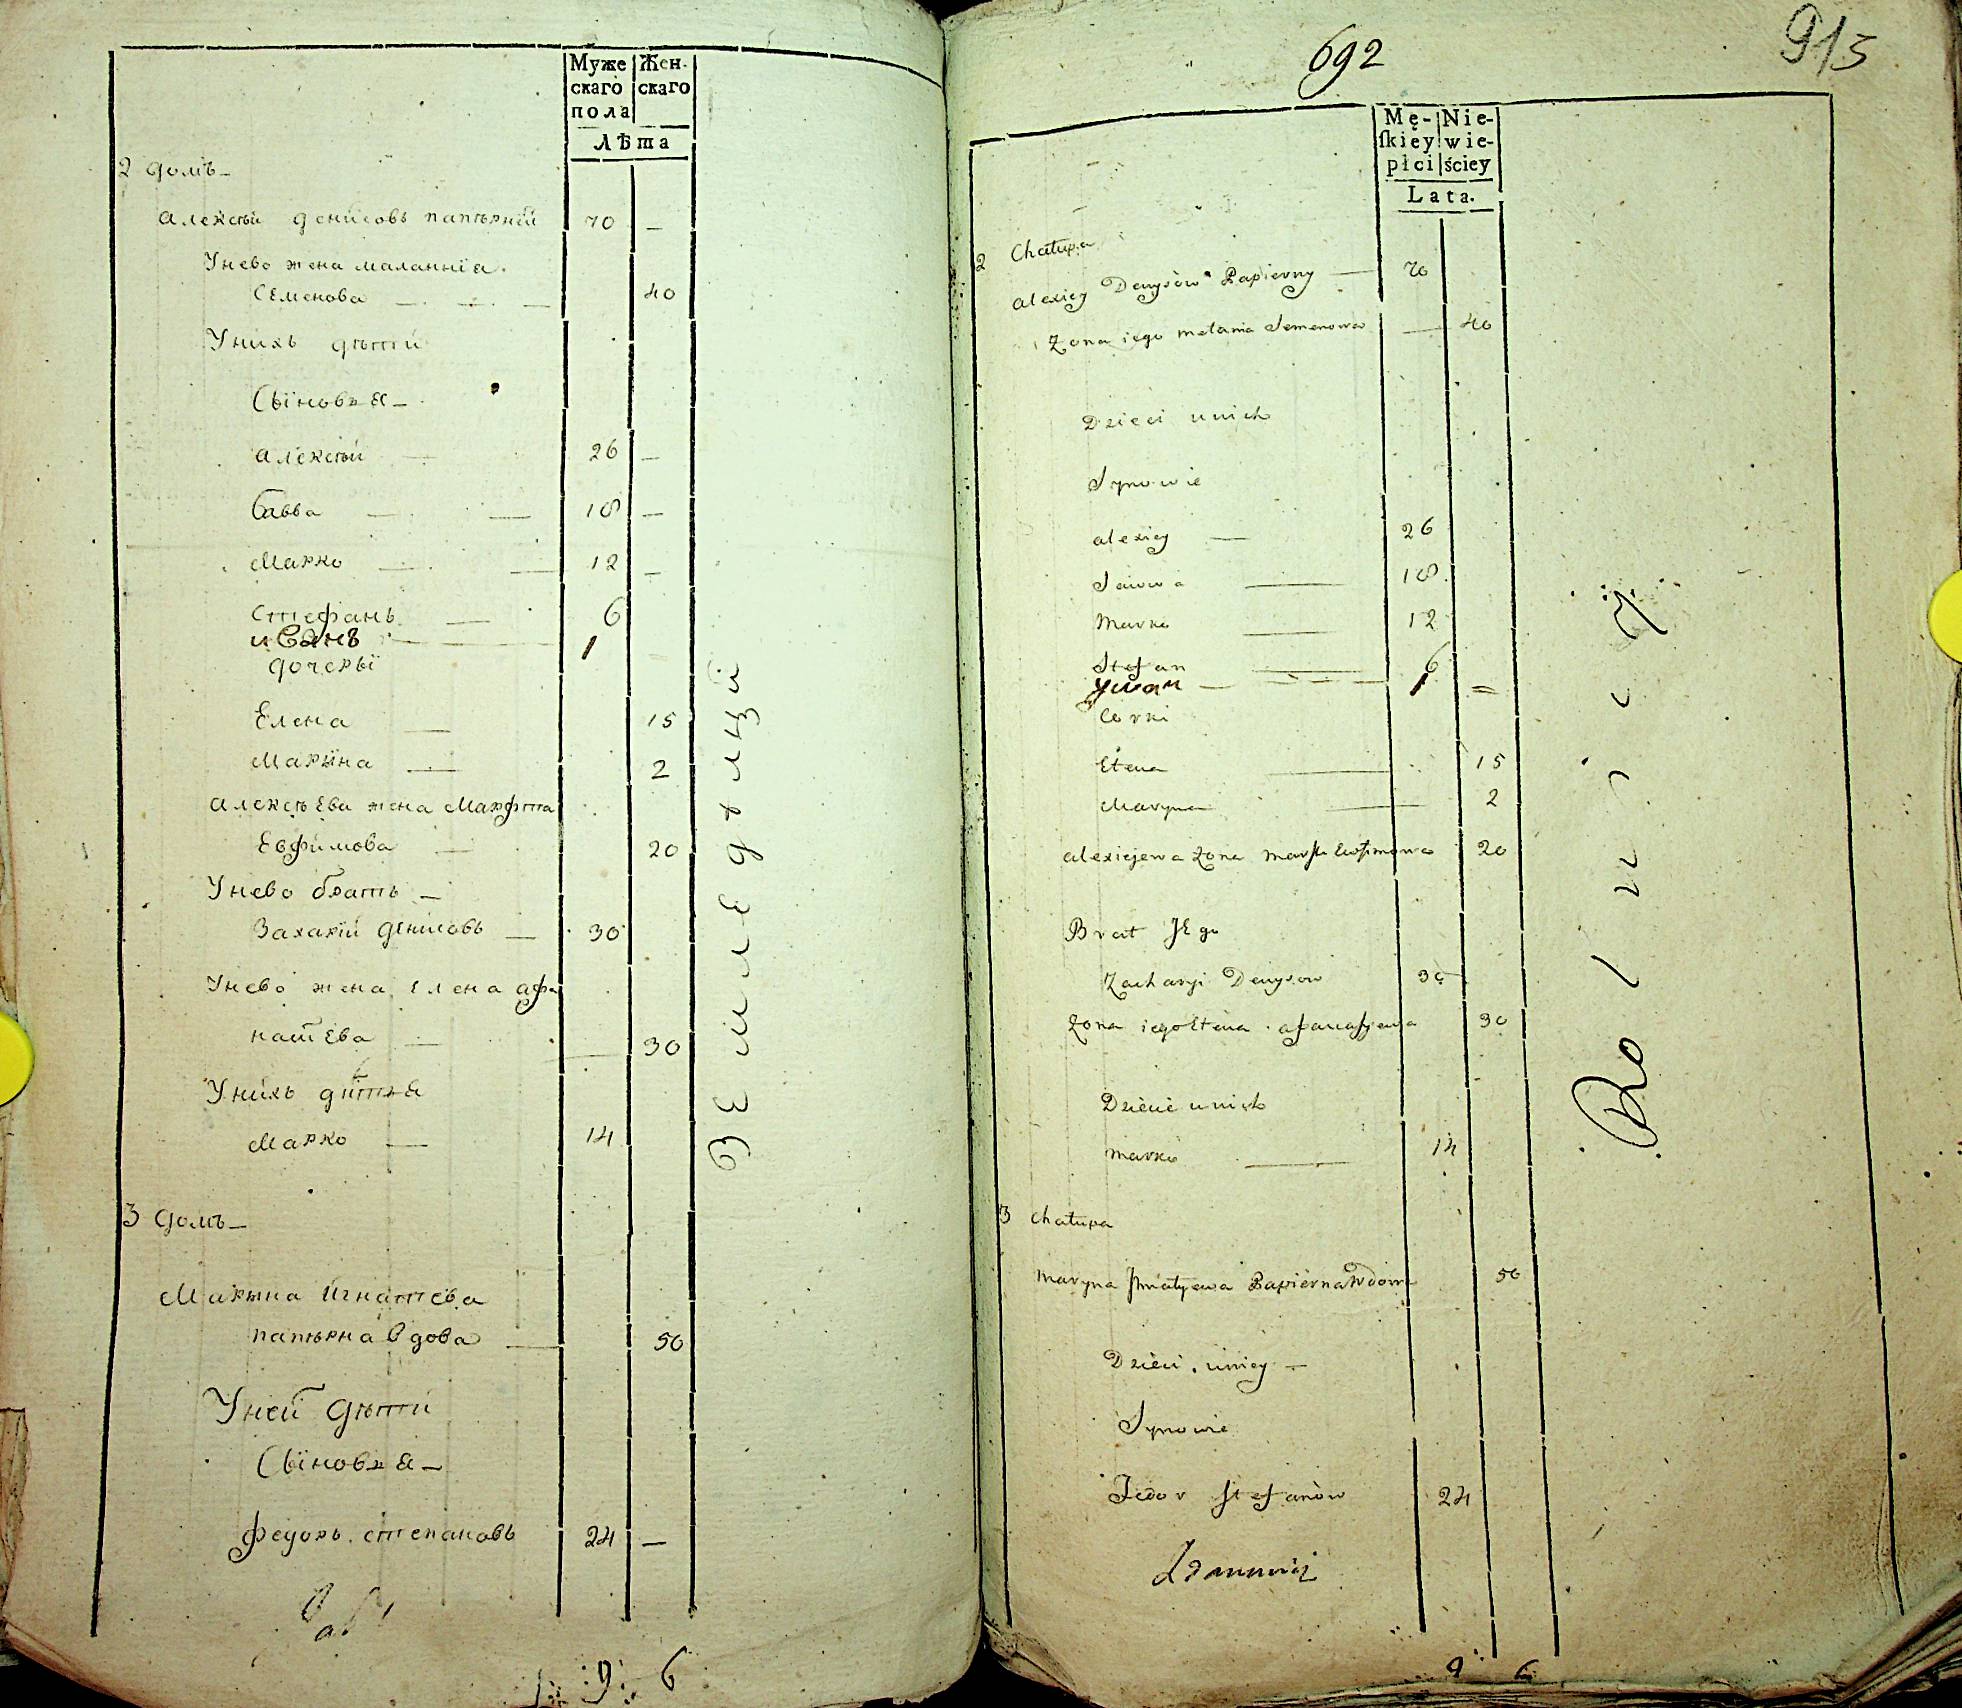 Муже Жен-
скаго скаго
пола
Лѣта
2 домъ
Алексѣй денисовъ папѣрнїй 70 —
Унево жена маланнїа
Семенова — 40
Унихъ дѣти
Сыновья
Алексѣй — 26 —
Савва — 18 —
Марко — 12 —
Стефанъ — 6
иванъ — 1
дочеры
Елена — 15
Марына — 2
Алексѣева жена Марфта
Евфимова — 20
Унево братъ
Захарїй денисовъ — 30
Унево жена Елена афа
натева — 30
Унихъ дитя
Марко — 14
3 домъ
Марына Игнатева
папѣрна вдова — 50
Уней дѣти
Сыновья
Федоръ степановъ 24 —
9 6
Земледѣлцй
692
913
Mę- Nie-
ſkiey wie-
płci ściey
Lata.
2 Chałupa
Alexiey Denysów Papierny — 70
Zona iego melania Semenowa — 40
Dzieci unich
Synowie
alexiey — 26
Sawwa — 18
Marko — 12
Stefan — 6
Ywan — 1 =
Corki
Elena — 15
Maryna — 2
alexiejewa żona marfta Ewfimowa 20
Brat JEgo
Zacharyi Denysow 30
Zona iego Elena afanasyewa 30
Dziecie unich
marko — 14
3 chałupa
maryna Jhnatyewa Papierna Wdowa 50
Dzieci uniey —
Synowie
Fedor Stefanów 24
9 6
Rolnicy